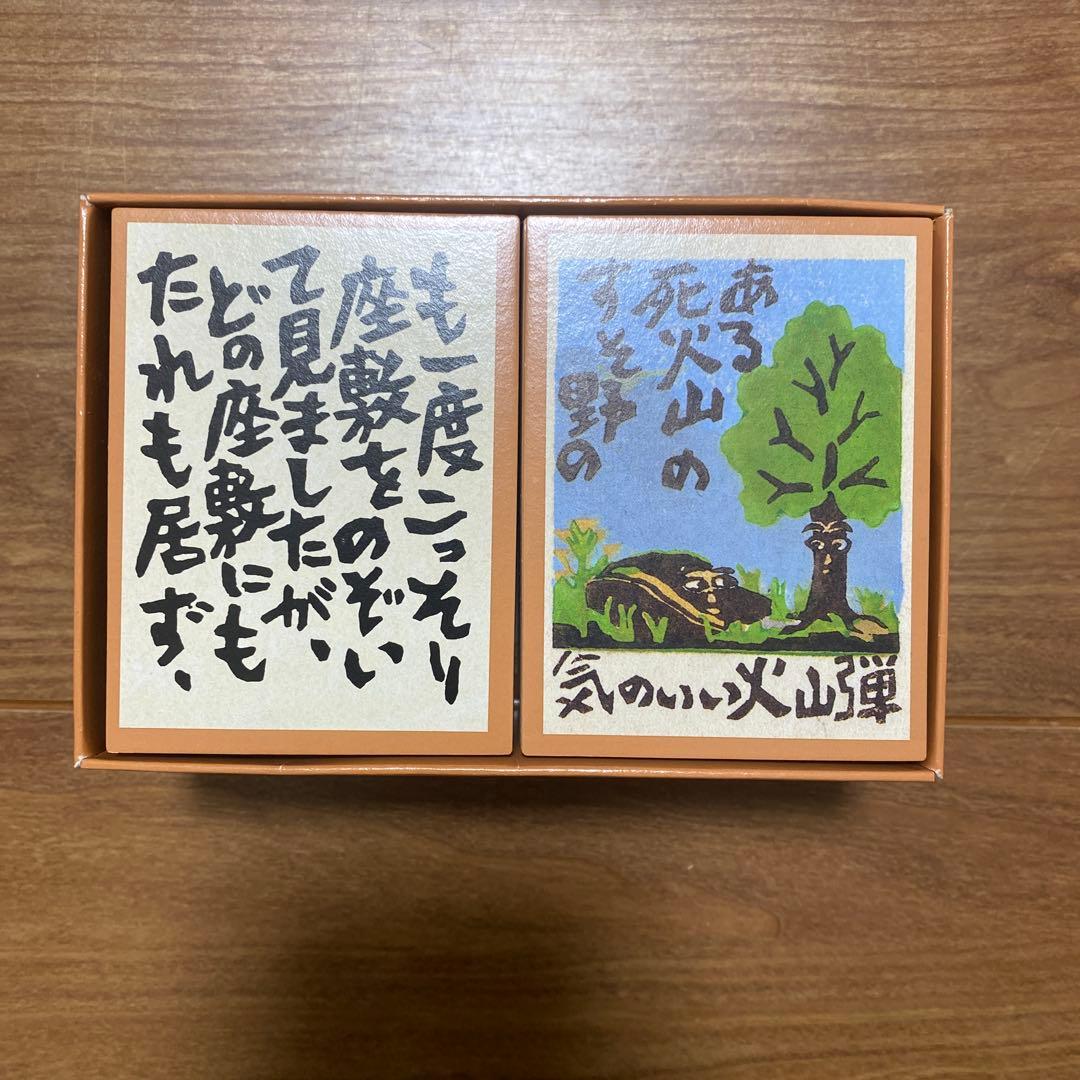 も一度こっそり
座敷をのぞい
て見ましたが、
どの座敷にも
たれも居ず、
ある
死火山の
すそ野の
気のいい火山弾